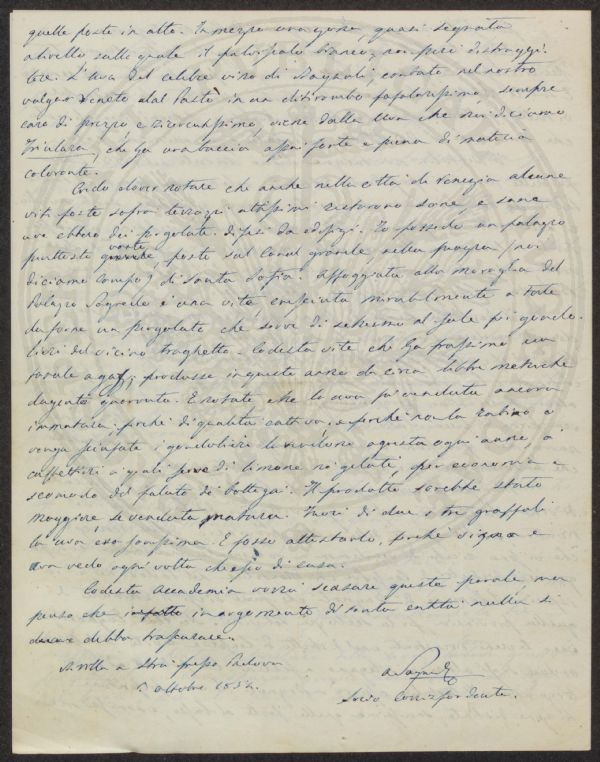 quelle poste in alto. In mezzo una gora, quasi segnata
a livello sulla quale il
tere. L'uva del celebre vino di Bagnoli, cantato nel nostro
vulgar Veneto dal Pastò in un ditirambo popolarissimo, sempre
caro di prezzo e ricercatissimo, viene dalla uva che noi diciamo
Friulara, che ha una buccia assai forte e piena di materia
colorante.
Credo dover notare che anche nella città di Venezia alcune
viti poste sopra terrazzi altissimi restarono sane, e sane
uve ebbero dei pergolati difesi da edifizj. Io possedo un palazzo
piuttosto vasto, posto sul Canal grande, nella piazza (noi
diciamo campo) di Santa Sofia. Appoggiata alla muraglia del
Palazzo Sagredo è una vite, cresciuta mirabilmente a tale
da farne un pergolato che serve di schermo al sole pei gondo-
lieri del vicino traghetto. Codesta vite che ha prossimo un
fanale a gaz, produsse in questo anno da circa libbre metriche
dugento quaranta. E notate che la uva fu venduta ancora
immatura, perchè di qualità cattiva, e perchè non la rubino o
venga i gondolieri la vendono agresta ogni anno, a
caffettieri a quali serve di limone nei gelati, per economia e
scomodo del palato di bottega. Il prodotto sarebbe stato
maggiore se venduta matura. Fuori di due o tre grappoli
la uva era sanissima. E posso attestarlo, perchè vigna e
uva vedo ogni volta ch'esco di casa.
Codesta Accademia vorrà scusare queste parole, ma
penso che in argomento di tanta entità nulla si
debba trascurare.
A Villa a Stra presso Padova
5 ottobre 1852.
Socio corrispondente.